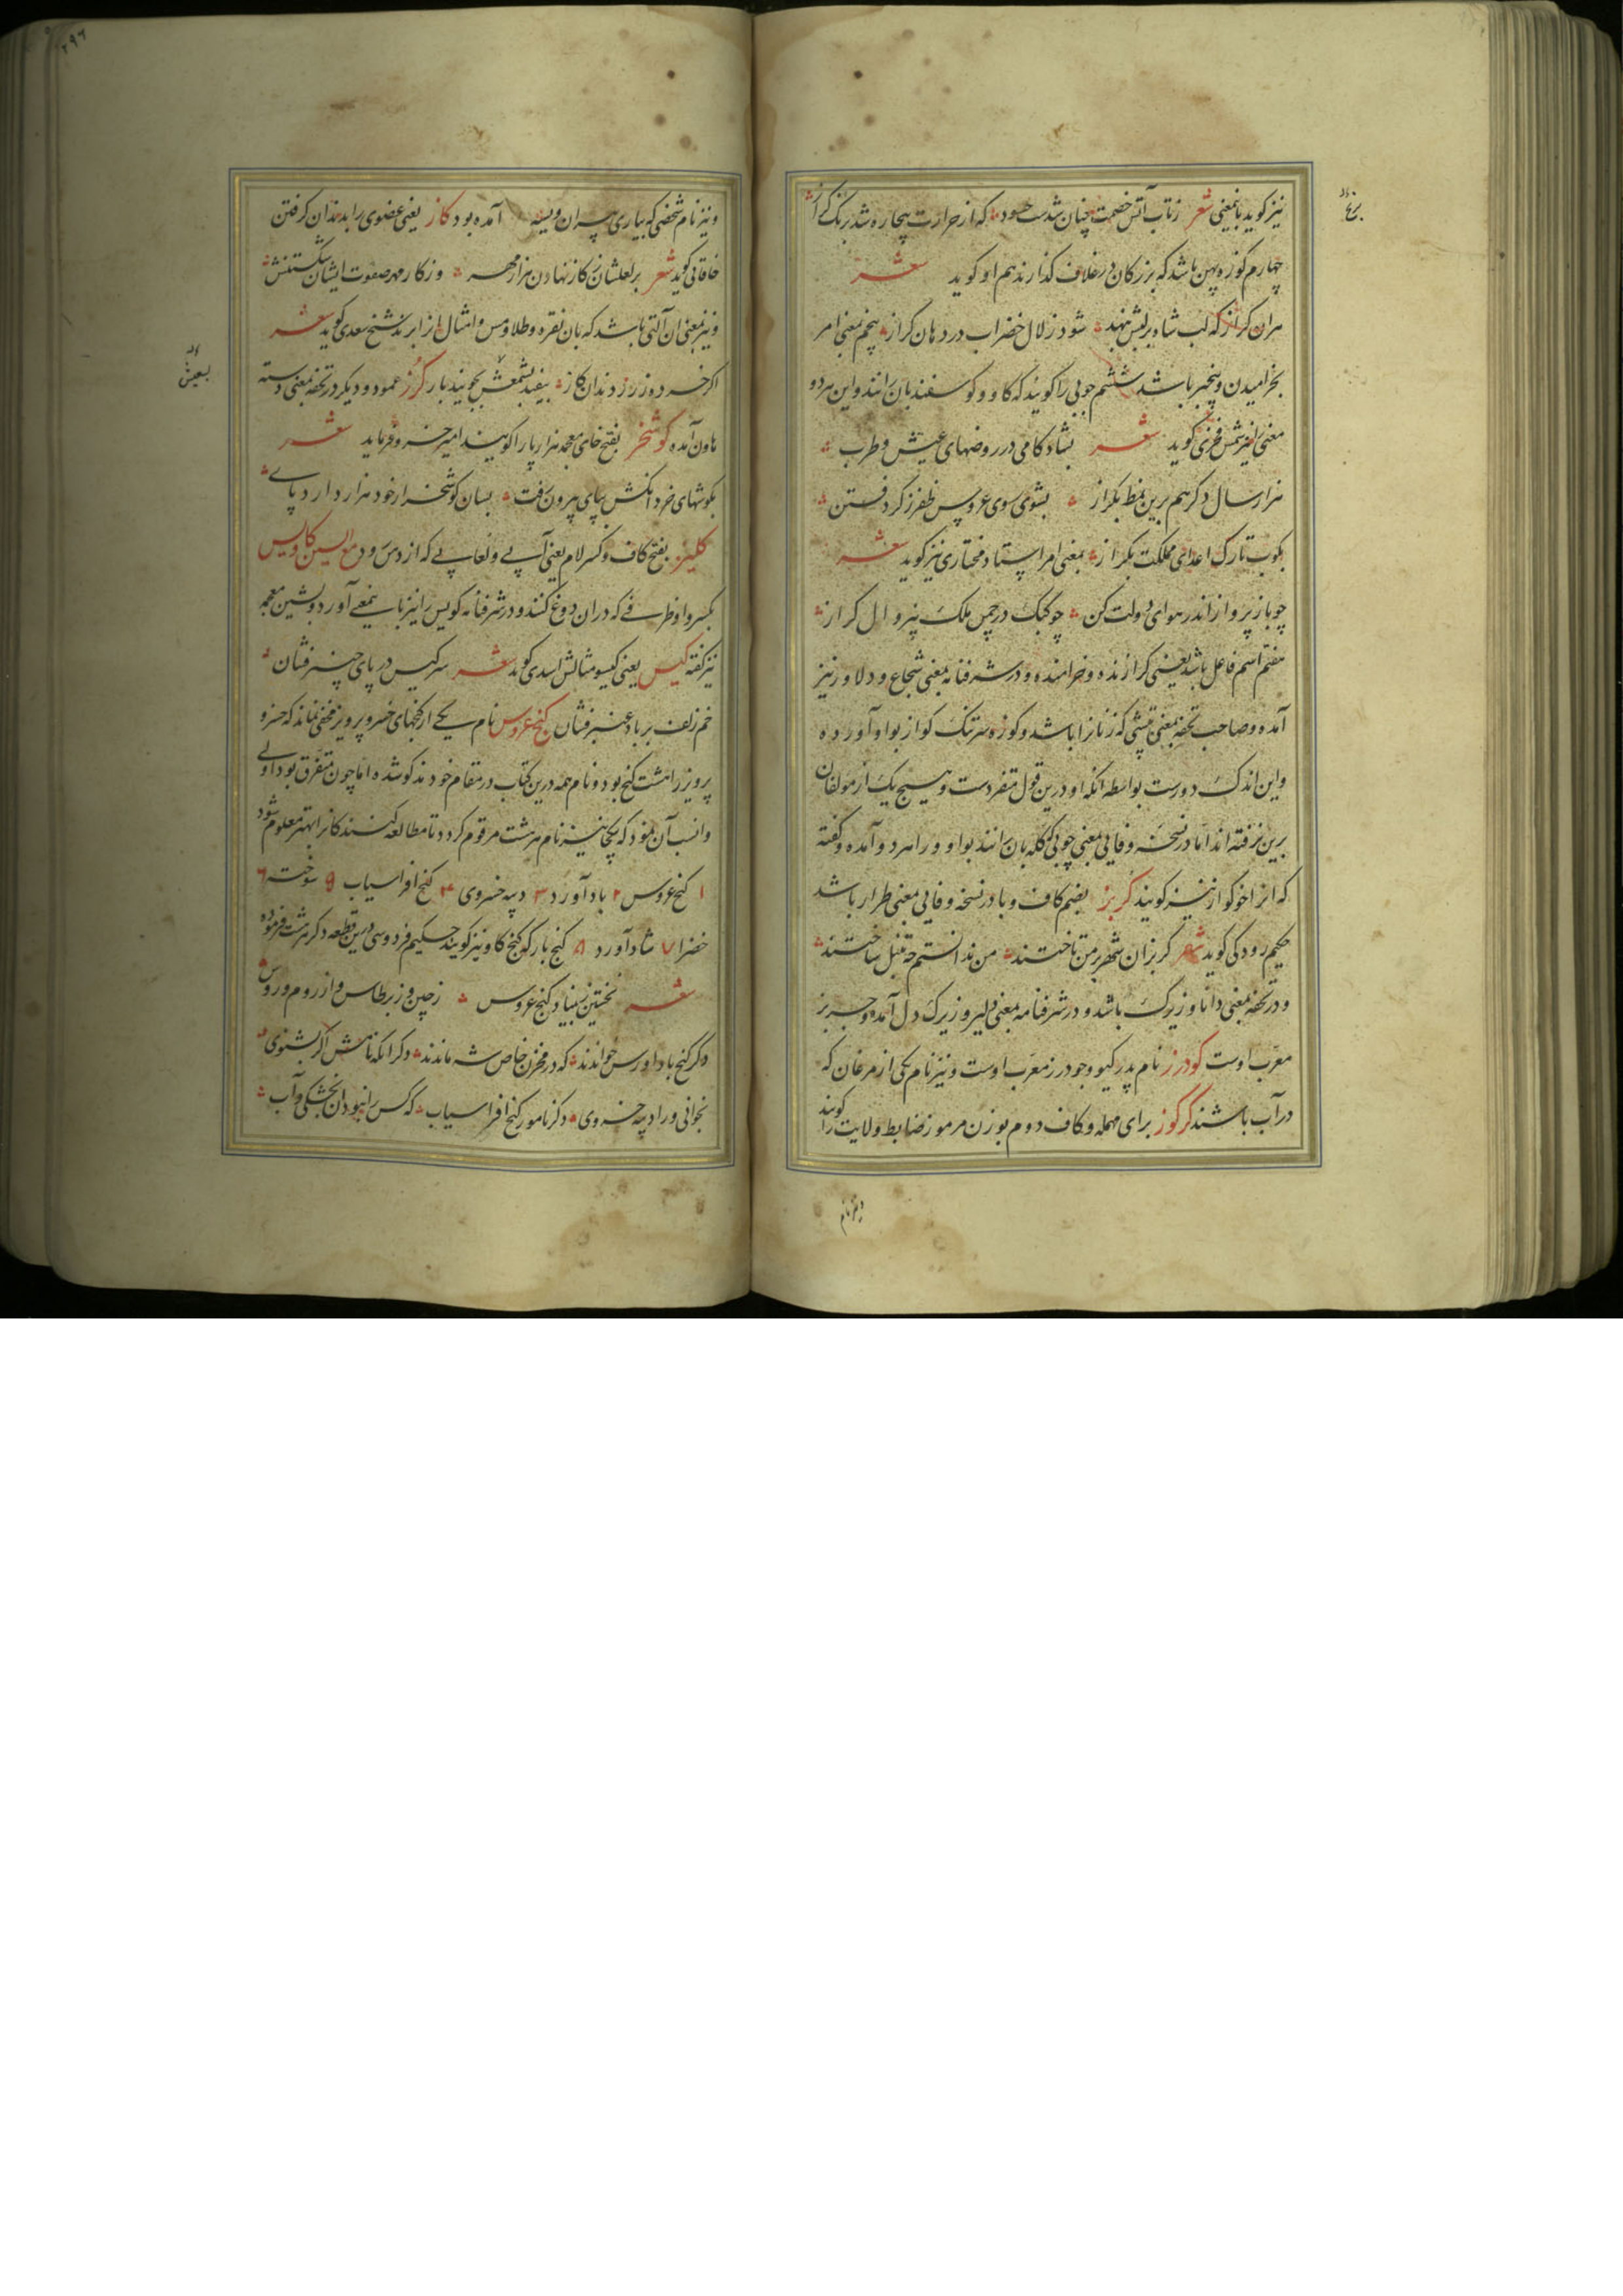 نیز کوید باینمعنی شعر زتاب آتش خصمت چنان شدست حسود که از حرارت بیچاره شد برنک کراز
چهارم کوزه پهن باشد که بزرکان در غلاف کذارند هم او کوید شعر
هران کراز که لب شاه بر لبش بنهد شود زلال خضر آب در دهان کراز پنجم بمعنی امر
بخرامیدن و پنجیر باشد ششم چوبی را کویند که کاو و کوسفند بان رانند و این هر دو
معنی را نیز شمس فخری کوید شعر بشادکامی در روضهای عیش و طرب
هزار سال دکر هم برین نمط بکراز بشوی سوی عروس ظفر ز کرد فتن
بکوب تارک اعدای مملکت بکراز بمعنی امر استاد مختاری نیز کوید شعر
چو باز پرواز اندر هوای دولت کن چو کبک در چمن ملک بیزوال کراز
هفتم اسم فاعل باشد یعنی کرازنده و خرامنده و در شرفنامه بمعنی شجاع و دلاور نیز
آمده و صاحب تحفه بمعنی تپشی که زنانرا باشد و کوزه سر تنک کواز بواو آورده
و این اندک دورست بواسطه آنکه او درین قول متفردست و هیچ یک از مولفان
برین نرفته اند اما در نسخه وفایی بمعنی چوبی که کله بان رانند بواو و را هر دو آمده و کفته
که انرا خوکواز نیز کویند کربز بضم کاف و با در نسخه وفایی بمعنی طرار باشد
حکیم رودکی کوید شعر کربزان شهر بر من تاختند من ندانستم چه تنبل ساختند
و در تحفه بمعنی دانا و زیرک باشد و در شرفنامه بمعنی دلیر و زیرک دل آمده و جربز
معرب اوست کودرز نام پدر کیو و جودرز معرب اوست و نیز نام یکی از مرغان که
در آب باشند کرکوز برای مهمله و کاف دوم بوزن مرموز ضابط ولایت را کویند
و نیز نام
و نیز نام شخصی که بیاری پیران ویسه آمده بود کاز یعنی عضوی را بدندان کرفتن
خاقانی کوید شعر بر لعلشان ز کاز نهادن هزار مهر و ز کاز مهر صفوت ایشان شکستنش
و نیز بمعنی ان آلتی باشد که بان نقره و طلا و مس و امثال انرا برند شیخ سعدی کوید شعر
اکر خرده زر ز دندان کاز بیفتد بشمعش بجویند باز کرز عمود و دیکر در تحفه بمعنی دسته
هاون آمده کوشخر بفتح خای معجمه هزارپا را کویند امیر خسرو فرماید شعر
بکوشهای خرد انکش بپای پیرون رفت بسان کوشخر ار خود هزار دارد پای
کلیز بفتح کاف و کسر لام یعنی آبی و لعابی که از دس رود مع السین کاویس
بکسر واو ظرفی که دران دوغ کنند و در شرفنامه کویس را نیز باین معنی آورده و بشین معجمه
نیز کفته کیس یعنی کیسو مثالش اسدی کوید شعر سر کیس در پای چنبر فشان
خم زلف بر باد عنبر فشان کنج عروس نام یکی از کنجهای خسرو پرویز مخفی نماند که خسرو
پرویز را هشت کنج بود و نام همه درین کتاب در مقام خود مذکور شده اما چون متفرق بود اولی
و انسب آن نمود که یکجا نیز نام هر هشت مرقوم کردد تا مطالعه کنندکانرا بهتر معلوم شود
۱ کنج عروس ۲ باد آورد ۳ دیبه خسروی ۴ کنج افراسیاب ۵ سوخته ۶
خضرا ۷ شاد آورد ۸ کنج بار که کنج کاو نیز کویند حکیم فردوسی درین قطعه ذکر هر هشت فرموده
شعر نخستین که بنیاد کنج عروس ز چین و ز برطاس و از روم و روس
دکر کنج باد اورس خواندند که در مخزن خاص شه ماندند دکر آنکه نامش اکر بشنوی
بخوانی ورا دیبه خسروی دکر نامور کنج افراسیاب که کس را نبود آن بخشکی و آب